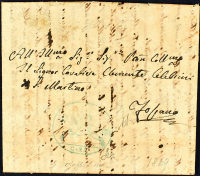 All'Illmo Sig. Sig. Pan Collmo
Il Signor Cavaliere Clemente Celebrini
S. Martino
Fossano